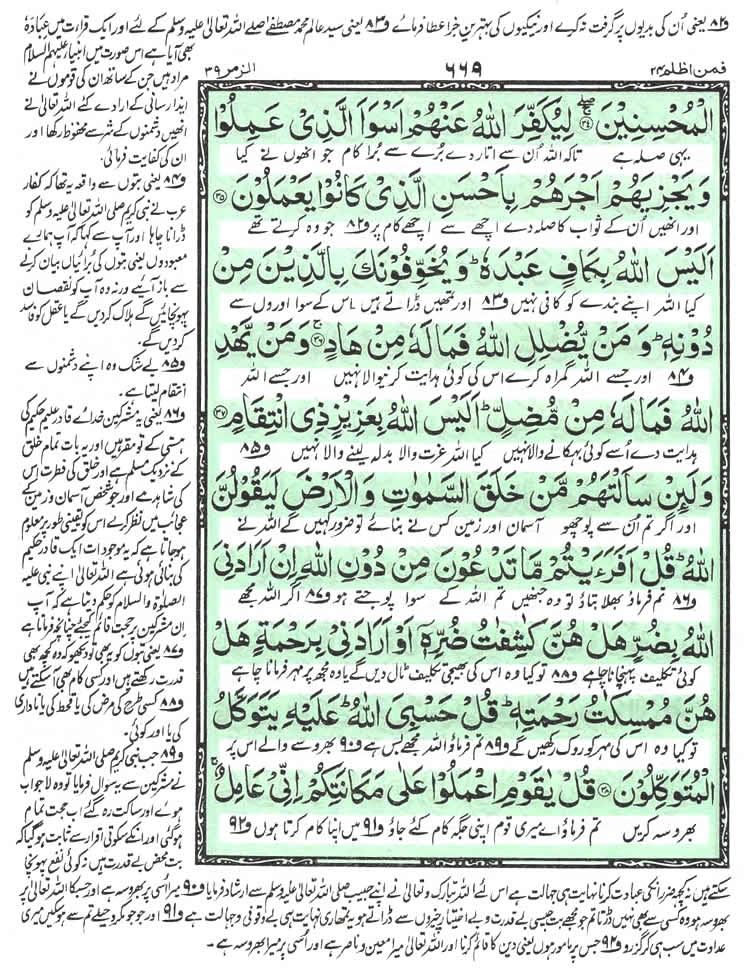 و۸۲ یعنی اُن کی بدیوں پر گرفت نہ کرے اور نیکیوں کی بہترین جزا عطا فرمائے و۸۳ یعنی سید عالم محمد مصطفےٰ صلے اللہ تعالیٰ علیہ وسلم کے لئے اور ایک قراءت میں عبادہٗ
فمن اظلم ۲۴
۶۶۹
الزمر ۳۹
الْمُحْسِنِیْنَ ۳۴ لِیُكَفِّرَ اللّٰهُ عَنْهُمْ اَسْوَاَ الَّذِیْ عَمِلُوْا
یہی صلہ ہے تاکہ اللہ اُن سے اتار دے بُرے سے بُرا کام جو انھوں نے کیا
وَ یَجْزِیَهُمْ اَجْرَهُمْ بِاَحْسَنِ الَّذِیْ كَانُوْا یَعْمَلُوْنَ ۳۵
اور انھیں اُن کے ثواب کا صلہ دے اچھے سے اچھے کام پر و۸۲ جو وہ کرتے تھے
اَلَیْسَ اللّٰهُ بِكَافٍ عَبْدَهٗ ؕ وَ یُخَوِّفُوْنَكَ بِالَّذِیْنَ مِنْ
کیا اللہ اپنے بندے کو کافی نہیں و۸۳ اور تمھیں ڈراتے ہیں اس کے سوا اوروں سے
دُوْنِهٖ ؕ وَ مَنْ یُّضْلِلِ اللّٰهُ فَمَا لَهٗ مِنْ هَادٍ ۳۶ وَ مَنْ یَّهْدِ
و۸۴ اور جسے اللہ گمراہ کرے اس کی کوئی ہدایت کرنیوالا نہیں اور جسے اللہ
اللّٰهُ فَمَا لَهٗ مِنْ مُّضِلٍّ ؕ اَلَیْسَ اللّٰهُ بِعَزِیْزٍ ذِی انْتِقَامٍ ۳۷
ہدایت دے اُسے کوئی بہکانے والا نہیں کیا اللہ عزت والا بدلہ لینے والا نہیں و۸۵
وَ لَىِٕنْ سَاَلْتَهُمْ مَّنْ خَلَقَ السَّمٰوٰتِ وَ الْاَرْضَ لَیَقُوْلُنَّ
اور اگر تم اُن سے پوچھو آسمان اور زمین کس نے بنائے تو ضرور کہیں گے اللہ نے
اللّٰهُ ؕ قُلْ اَفَرَءَیْتُمْ مَّا تَدْعُوْنَ مِنْ دُوْنِ اللّٰهِ اِنْ اَرَادَنِیَ
و۸۶ تم فرماؤ بھلا بتاؤ تو وہ جنھیں تم اللہ کے سوا پوجتے ہو و۸۷ اگر اللہ مجھے
اللّٰهُ بِضُرٍّ هَلْ هُنَّ كٰشِفٰتُ ضُرِّهٖۤ اَوْ اَرَادَنِیْ بِرَحْمَةٍ هَلْ
کوئی تکلیف پہنچانا چاہے و۸۸ تو کیا وہ اس کی بھیجی تکلیف ٹال دیں گے یا وہ مجھ پر مہر فرمانا چاہے
هُنَّ مُمْسِكٰتُ رَحْمَتِهٖ ؕ قُلْ حَسْبِیَ اللّٰهُ ؕ عَلَیْهِ یَتَوَكَّلُ
تو کیا وہ اس کی مہر کو روک رکھیں گے و۸۹ تم فرماؤ اللہ مجھے بس ہے و۹۰ بھروسے والے اس پر
الْمُتَوَكِّلُوْنَ ۳۸ قُلْ یٰقَوْمِ اعْمَلُوْا عَلٰی مَكَانَتِكُمْ اِنِّیْ عَامِلٌ ۚ
بھروسہ کریں تم فرماؤ اے میری قوم اپنی جگہ کام کئے جاؤ و۹۱ میں اپنا کام کرتا ہوں و۹۲
بھی آیا ہے اس صورت میں انبیاء علیہم السلام
مراد ہیں جن کے ساتھ ان کی قوموں نے
ایذا رسانی کے ارادے کئے اللہ تعالیٰ نے
انھیں دشمنوں کے شر سے محفوظ رکھا اور
ان کی کفایت فرمائی.
و۸۴ یعنی بتوں سے واقعہ یہ تھا کہ کفار
عرب نے نبی کریم صلی اللہ تعالیٰ علیہ وسلم کو
ڈرانا چاہا اور آپ سے کہا کہ آپ ہمارے
معبودوں یعنی بتوں کی بُرائیاں بیان کرنے
سے باز آیئے ورنہ وہ آپ کو نقصان
پہونچائیں گے ہلاک کردیں گے یا عقل کو فاسد
کردیں گے.
و۸۵ بے شک وہ اپنے دشمنوں سے
انتقام لیتا ہے.
و۸۶ یعنی یہ مشرکین خدائے قادر علیم حکیم کی
ہستی کے تو مقر ہیں اور یہ بات تمام خلق
کے نزدیک مسلم ہے اور خلق کی فطرت اس
کی شاہد ہے اور جو شخص آسمان و زمین کے
عجائب میں نظر کرے اس کو یقینی طور پر معلوم
ہوجاتا ہے کہ یہ موجودات ایک قادر حکیم
کی بنائی ہوئی ہے اللہ تعالیٰ اپنے نبی علیہ
الصلوٰۃ والسلام کو حکم دیتا ہے کہ آپ
ان مشرکین پر حجت قائم کیجئے چنانچہ فرماتا ہے
و۸۷ یعنی بتوں کو یہ بھی تو دیکھو کہ وہ کچھ بھی
قدرت رکھتے ہیں اور کسی کام بھی آسکتے ہیں
و۸۸ کسی طرح کی مرض کی یا قحط کی یا ناداری
کی یا اور کوئی.
و۸۹ جب نبی کریم صلی اللہ تعالیٰ علیہ وسلم
نے مشرکین سے یہ سوال فرمایا تو وہ لاجواب
ہوئے اور ساکت رہ گئے اب حجت تمام
ہوگئی اور انکے سکوتی اقرار سے ثابت ہوگیا کہ
بت محض بے قدرت ہیں نہ کوئی نفع پہونچا
سکتے ہیں نہ کچھ ضرر انکی عبادت کرنا نہایت ہی جہالت ہے اس لئے اللہ تبارک و تعالیٰ نے اپنے حبیب صلی اللہ تعالیٰ علیہ وسلم سے ارشاد فرمایا و۹۰ میرا اُسی پر بھروسہ ہے اور جسکا اللہ تعالیٰ پر
بھروسہ ہو وہ کسی سے بھی نہیں ڈرتا تم جو مجھے بت جیسی بے قدرت و بے اختیار چیزوں سے ڈراتے ہو یہ تمھاری نہایت ہی بے وقوفی و جہالت ہے و۹۱ اور جو جو مکر و حیلے تم سے ہوسکیں میری
عداوت میں سب ہی کر گزرو و۹۲ جس پر مامور ہوں یعنی دین کا قائم کرنا اور اللہ تعالیٰ میرا معین و ناصر ہے اور اُسی پر میرا بھروسہ ہے ۔